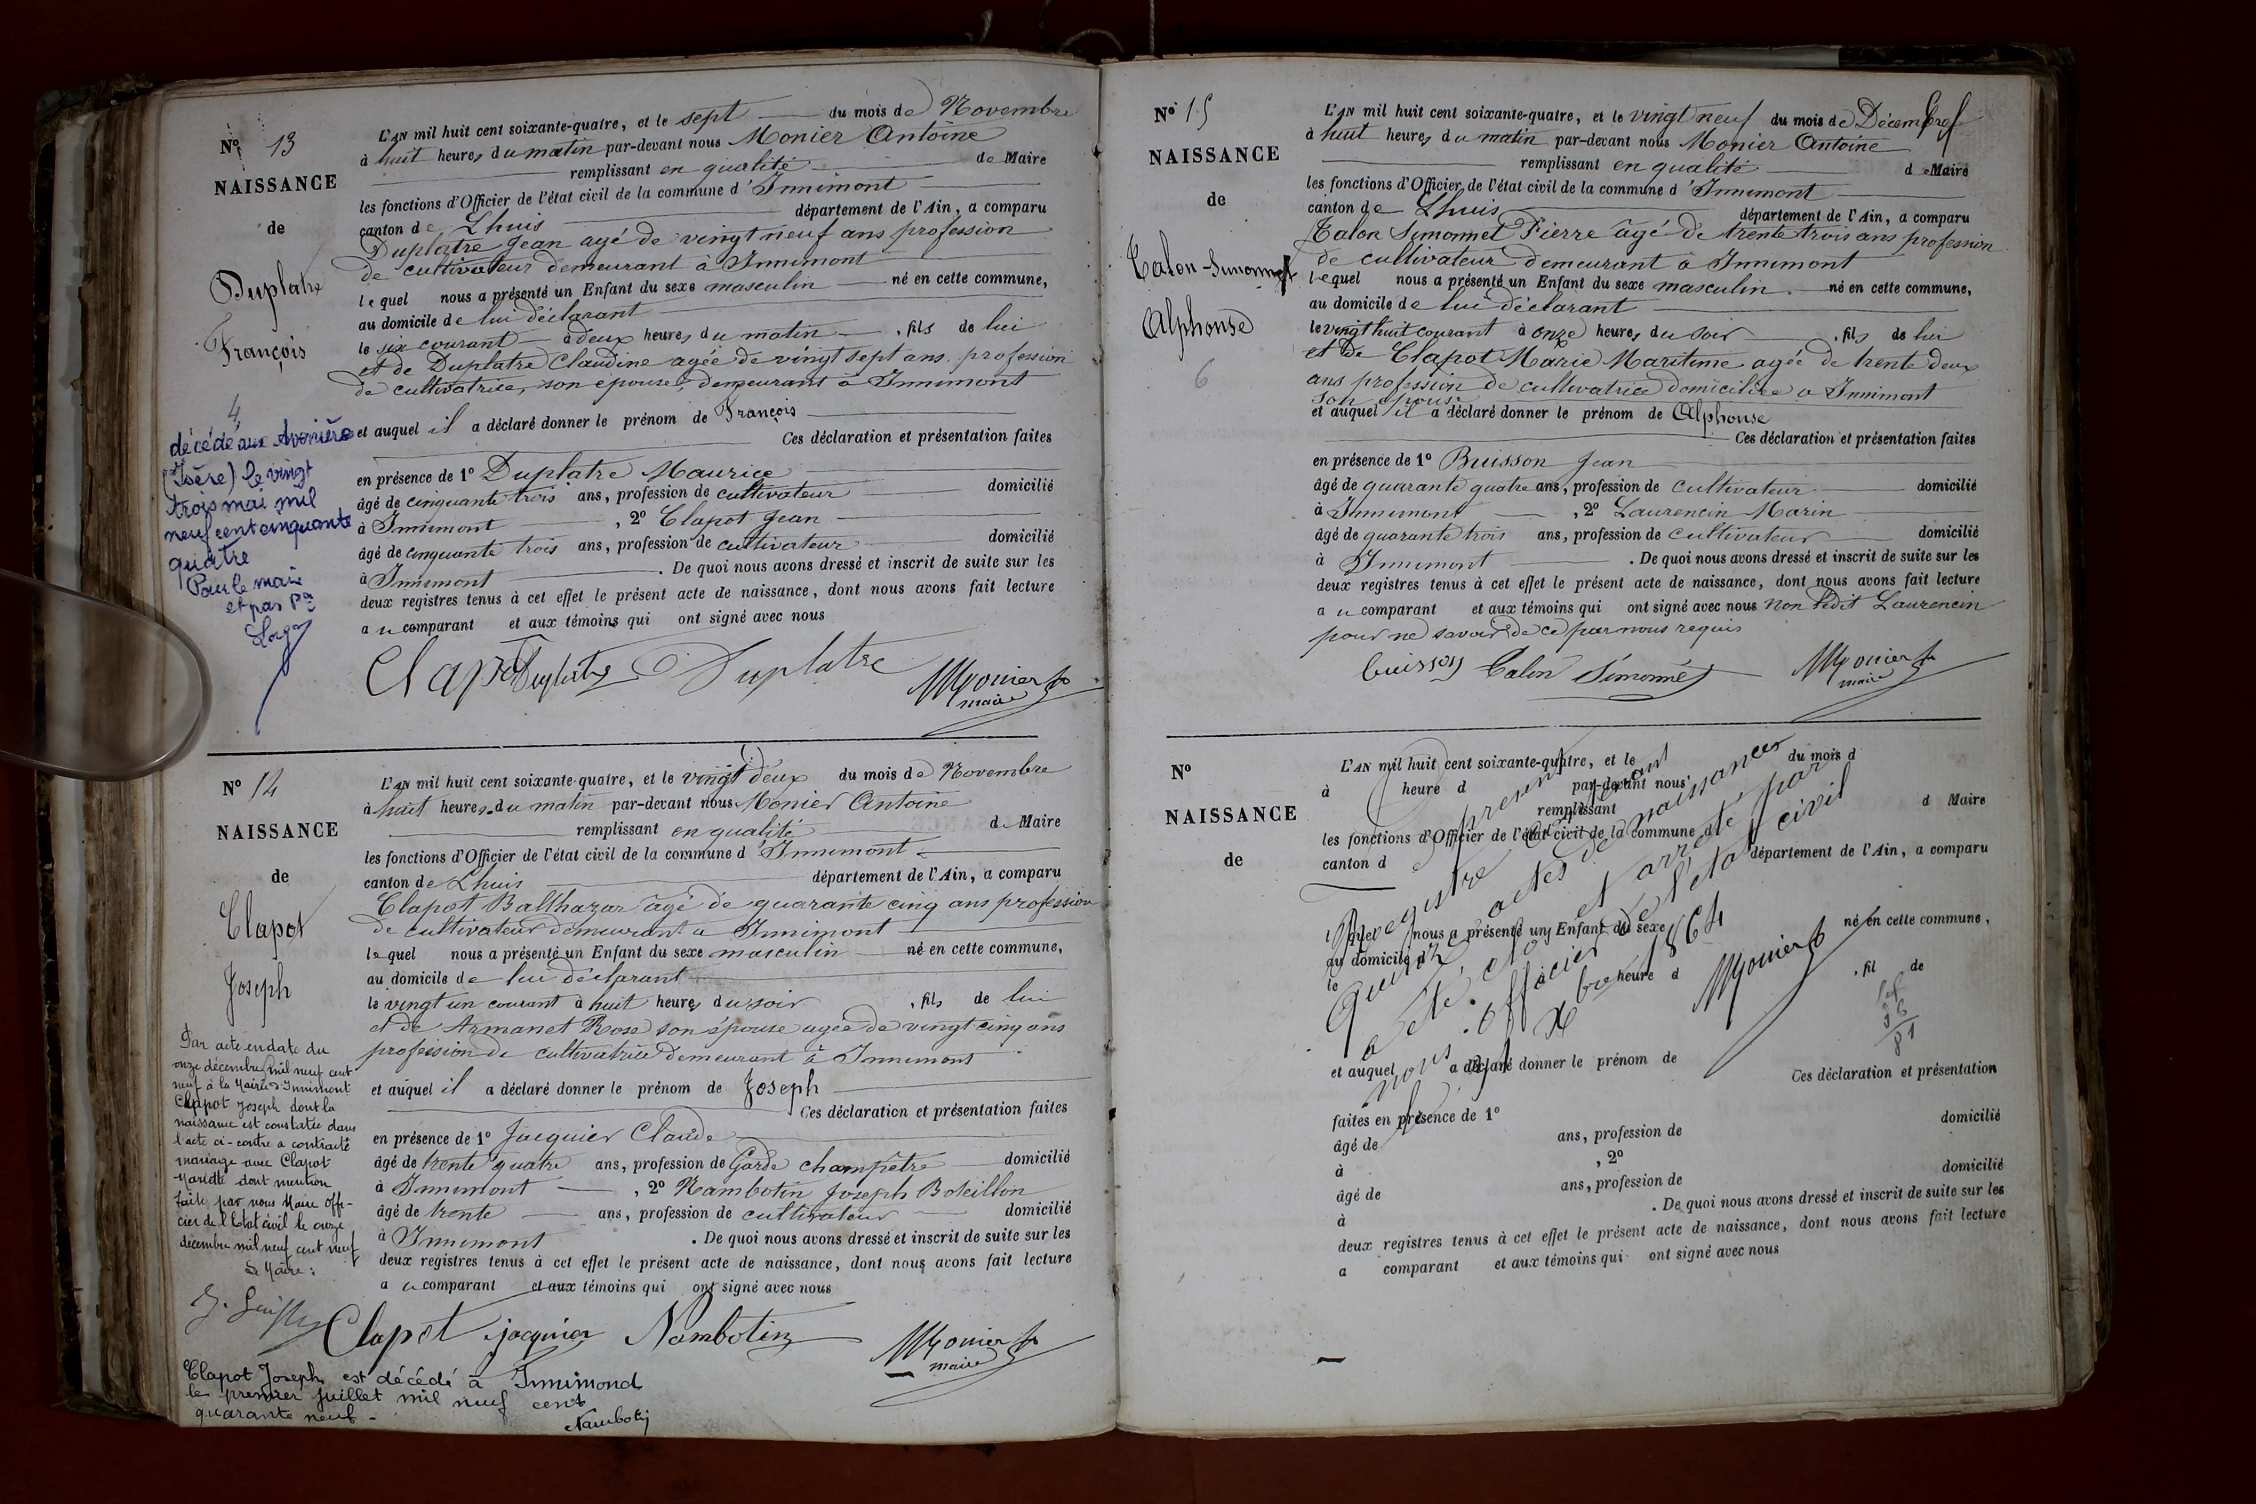 Nº 13
NAISSANCE
de
Duplatre
François
4
décédé aux Avenières
(Isère) le vingt
trois mai mil
neuf cent cinquante
quatre
Pour le maire
et par
L'AN mil huit cent soixante-quatre, et le sept du mois de Novembre
à huit heures du matin par-devant nous Monier Antoine
remplissant en qualité de Maire
les fonctions d'Officier de l'état civil de la commune d'Innimont
canton de Lhuis département de l'Ain, a comparu
Duplatre Jean agé de vingt neuf ans profession
de cultivateur demeurant à Innimont
lequel nous a présenté un Enfant du sexe masculin né en cette commune,
au domicile de lui déclarant
le six courant à deux heures du matin , fils de lui
et de Duplatre Claudine agée de vingt sept ans profession
de cultivatrice, son epouse, demeurant à Innimont
et auquel il a déclaré donner le prénom de François
Ces déclaration et présentation faites
en présence de 1º Duplatre Maurice
âgé de cinquante trois ans, profession de cultivateur domicilié
à Innimont , 2º Clapot Jean
âgé de cinquante trois ans, profession de cultivateur domicilié
à Innimont . De quoi nous avons dressé et inscrit de suite sur les
deux registres tenus à cet effet le présent acte de naissance, dont nous avons fait lecture
au comparant et aux témoins qui ont signé avec nous
Clapot Duplatre Duplatre Monier
maire
Nº 14
NAISSANCE
de
Clapot
Joseph
Par acte en date du
onze décembre mil neuf cent
neuf à la Mairie d'Innimont
Clapot Joseph dont la
naissance est constatée dans
l'acte ci-contre a contracté
mariage avec Clapot
Mariette dont mention
faite par nous Maire offi-
cier de l'Etat civil le onze
décembre mil neuf cent neuf
Le Maire :
L'AN mil huit cent soixante-quatre, et le vingt deux du mois de Novembre
à huit heures du matin par-devant nous Monier Antoine
remplissant en qualité de Maire
les fonctions d'Officier de l'état civil de la commune d'Innimont
canton de Lhuis département de l'Ain, a comparu
Clapot Balthazar agé de quarante cinq ans profession
de cultivateur demeurant a Innimont
lequel nous a présenté un Enfant du sexe masculin né en cette commune,
au domicile de lui déclarant
le vingt un courant à huit heures du soir , fils de lui
et de Armanet Rose son épouse agée de vingt cinq ans
profession de cultivatrice demeurant à Innimont
et auquel il a déclaré donner le prénom de Joseph
Ces déclaration et présentation faites
en présence de 1º Jacquier Claude
âgé de trente quatre ans, profession de Garde champêtre domicilié
à Innimont , 2º Nambotin Joseph Boteillon
âgé de trente ans, profession de cultivateur domicilié
à Innimont . De quoi nous avons dressé et inscrit de suite sur les
deux registres tenus à cet effet le présent acte de naissance, dont nous avons fait lecture
au comparant et aux témoins qui ont signé avec nous
Clapot jacquier Nambotin Monier
maire
Clapot Joseph est décédé à Innimond
le premier juillet mil neuf cent
quarante neuf -
Nambotin
Nº 15
NAISSANCE
de
Talon-Simonnet
Alphonse
6
L'AN mil huit cent soixante-quatre, et le vingt neuf du mois de Décembre
à huit heures du matin par-devant nous Monier Antoine
remplissant en qualité de Maire
les fonctions d'Officier de l'état civil de la commune d'Innimont
canton de Lhuis département de l'Ain, a comparu
Talon Simonnet Pierre agé de trente trois ans profession
de cultivateur demeurant à Innimont
lequel nous a présenté un Enfant du sexe masculin né en cette commune,
au domicile de lui déclarant
le vingt huit courant à onze heures du soir , fils de lui
et de Clapot Marie Maritime agée de trente deux
ans profession de cultivatrice domiciliée a Innimont
son épouse
et auquel il a déclaré donner le prénom de Alphonse
Ces déclaration et présentation faites
en présence de 1º Buisson Jean
âgé de quarante quatre ans, profession de cultivateur domicilié
à Innimont , 2º Laurencin Marin
âgé de quarante trois ans, profession de cultivateur domicilié
à Innimont . De quoi nous avons dressé et inscrit de suite sur les
deux registres tenus à cet effet le présent acte de naissance, dont nous avons fait lecture
au comparant et aux témoins qui ont signé avec nous non ledit Laurencin
pour ne savoir de ce par nous requis
buisson Talon Simonnet Monier
maire
Nº
NAISSANCE
de
L'AN mil huit cent soixante-quatre, et le du mois d
à heure d par-devant nous
remplissant d Maire
les fonctions d'Officier de l'état civil de la commune d
canton d département de l'Ain, a comparu
lequel nous a présenté un Enfant du sexe né en cette commune,
au domicile d
le heure d , fil de
et auquel a déclaré donner le prénom de
Ces déclaration et présentation
faites en présence de 1º
âgé de ans, profession de domicilié
à , 2º
âgé de ans, profession de domicilié
à . De quoi nous avons dressé et inscrit de suite sur les
deux registres tenus à cet effet le présent acte de naissance, dont nous avons fait lecture
a comparant et aux témoins qui ont signé avec nous
Le present
Registre contenant
quinze actes de naissances
a été clos et arrêté par
nous officier de l'état civil
le 31 Xbre 1864
Monier